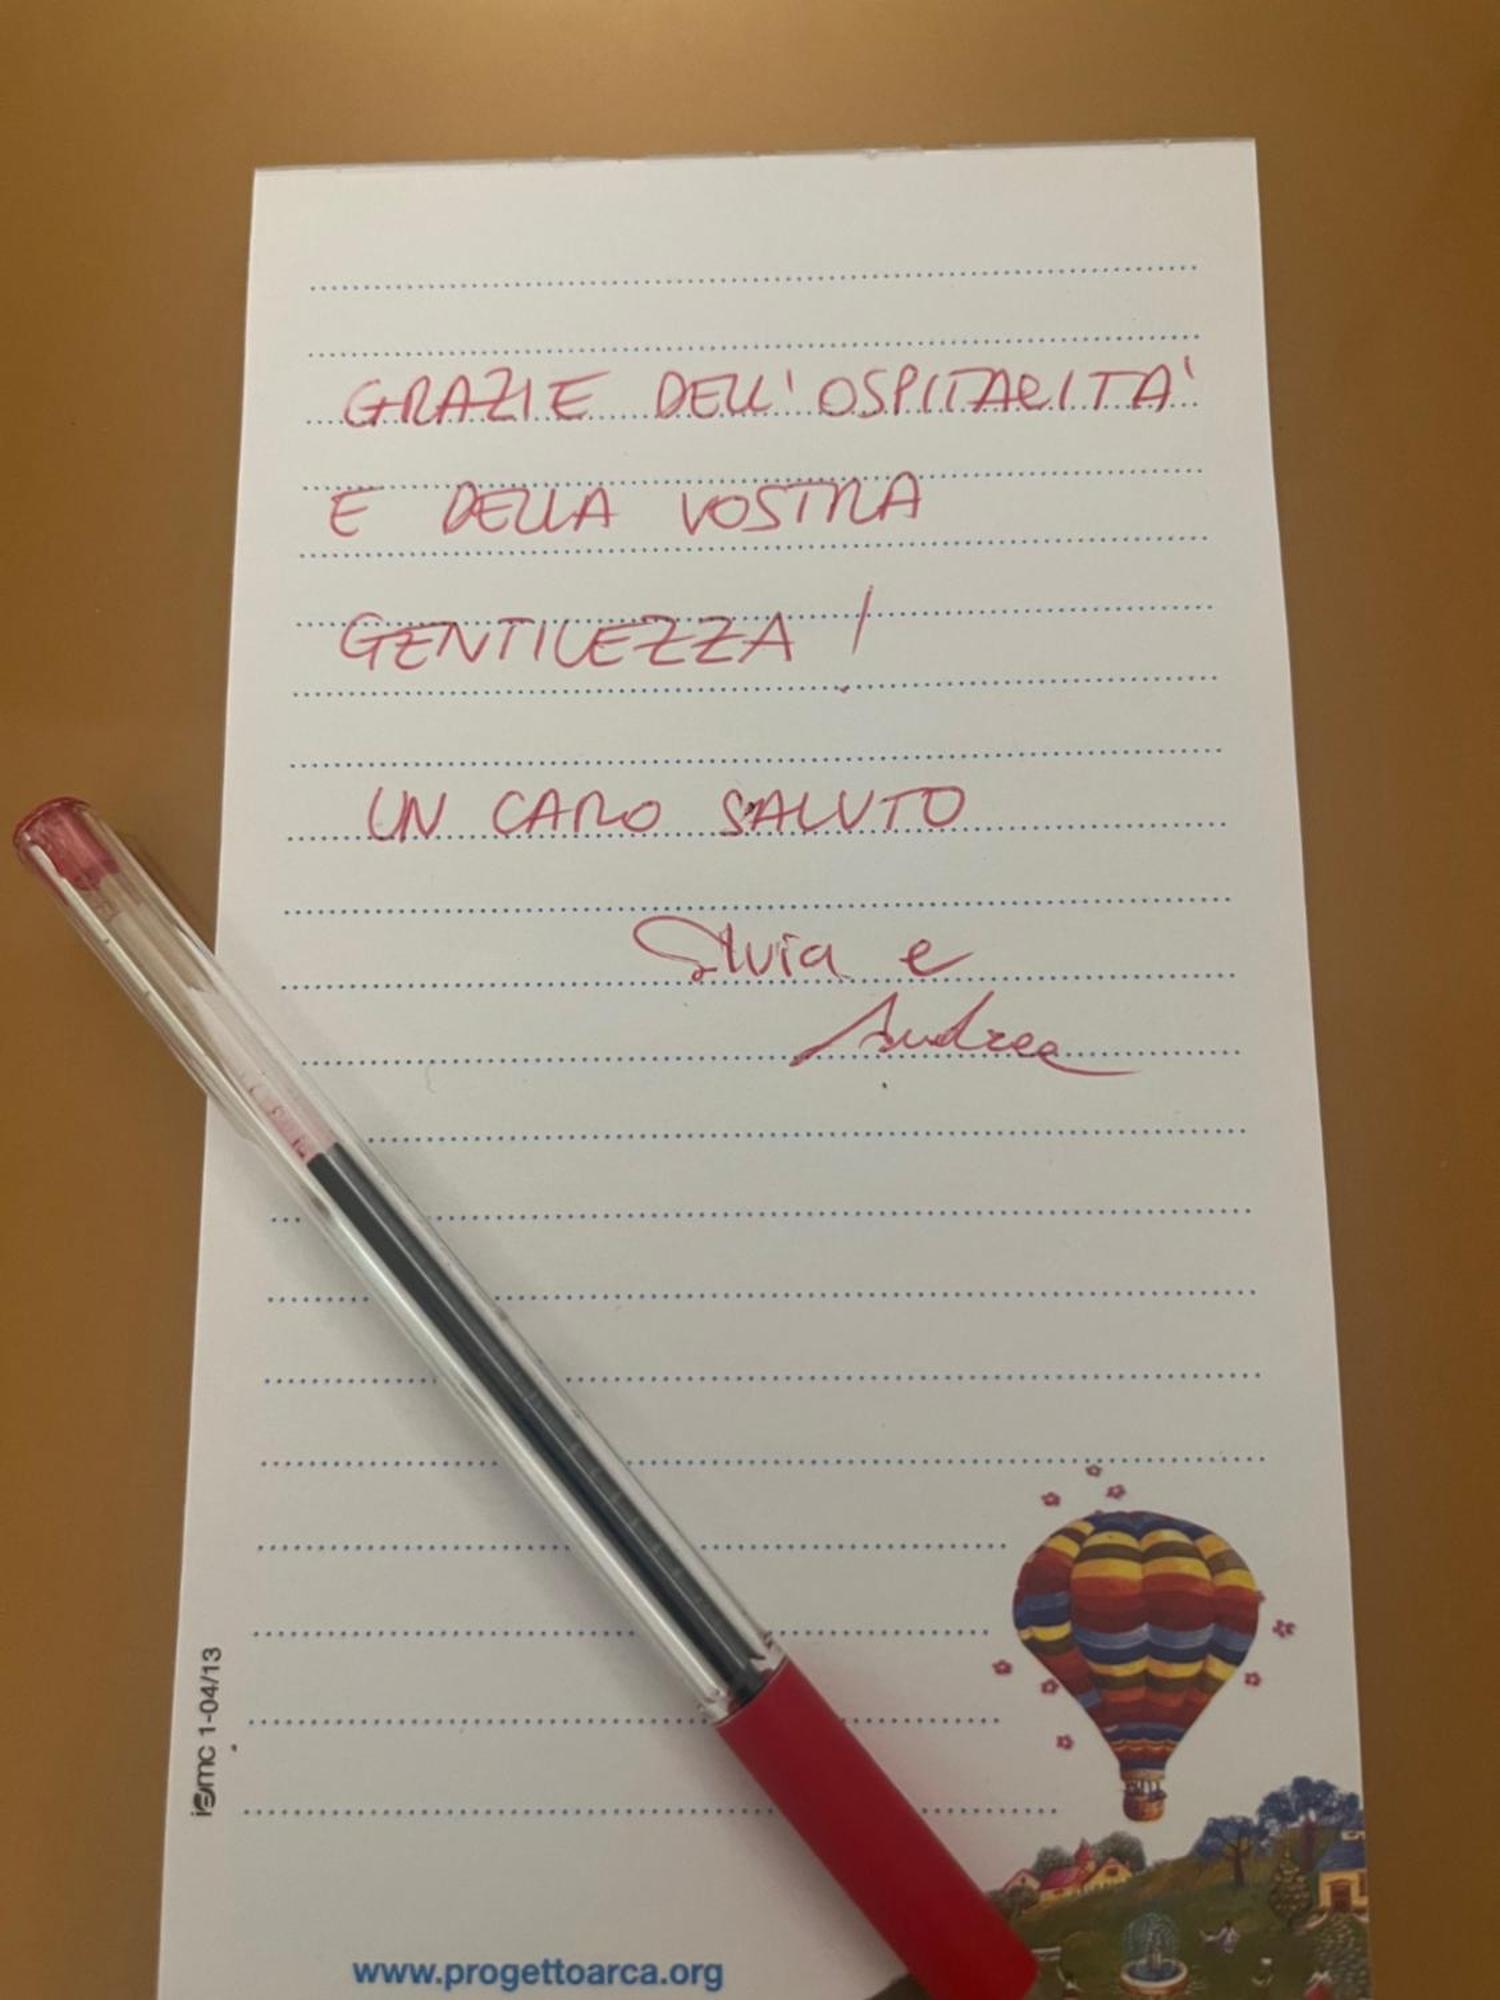 GRAZIE DELL'OSPITALITA'
E DELLA VOSTRA
GENTILEZZA!
UN CARO SALUTO
Silvia e
Andrea
iemc 1-04/13
www.progettoarca.org